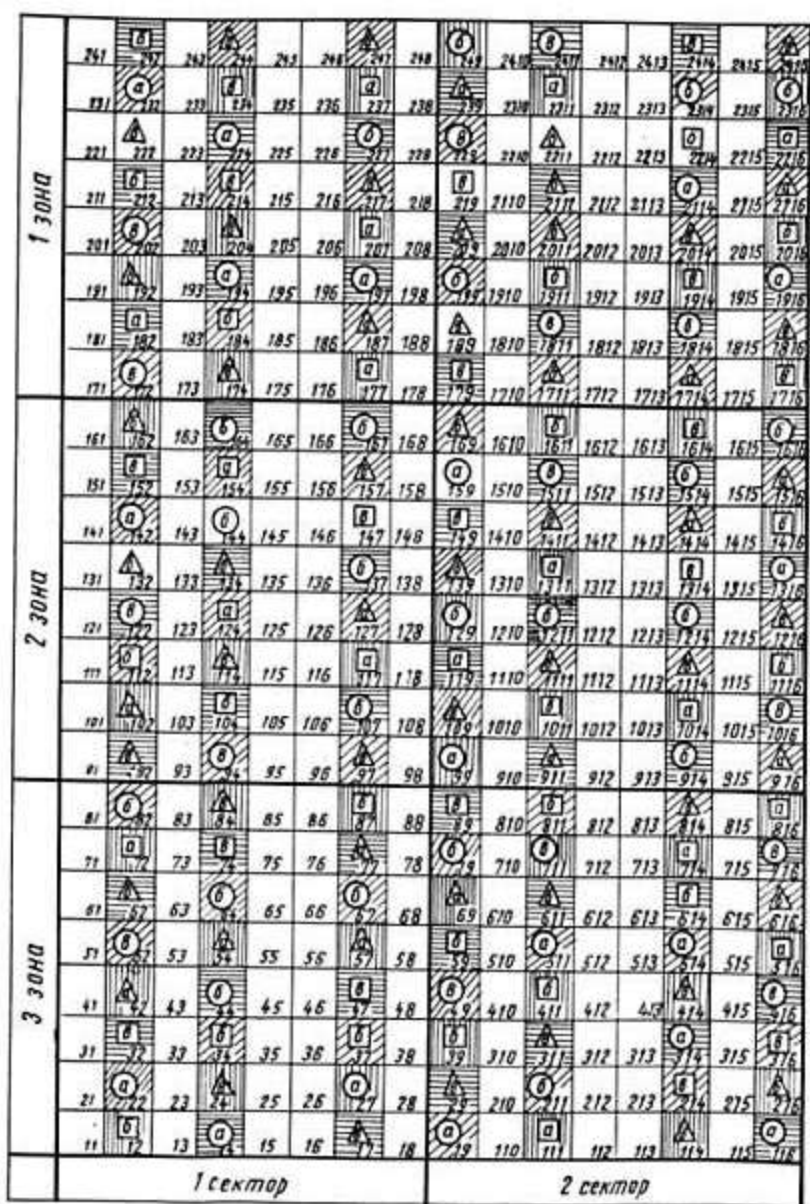 1 зона
б б в в
241 242 243 244 245 246 247 248 249 2410 2411 2412 2413 2414 2415 2416
а в а а б б
231 232 233 234 235 236 237 238 239 2310 2311 2312 2313 2314 2315 2316
а б в б а
221 222 223 224 225 226 227 228 229 2210 2211 2212 2213 2214 2215 2216
б в в а
211 212 213 214 215 216 217 218 219 2110 2111 2112 2113 2114 2115 2116
в а б
201 202 203 204 205 206 207 208 209 2010 2011 2012 2013 2014 2015 2016
а а б б в а
191 192 193 194 195 196 197 198 199 1910 1911 1912 1913 1914 1915 1916
а б в в
181 182 183 184 185 186 187 188 189 1810 1811 1812 1813 1814 1815 1816
в а в в
171 172 173 174 175 176 177 178 179 1710 1711 1712 1713 1714 1715 1716
2 зона
б б б в б
161 162 163 164 165 166 167 168 169 1610 1611 1612 1613 1614 1615 1616
в а а в б
151 152 153 154 155 156 157 158 159 1510 1511 1512 1513 1514 1515 1516
а б в в б
141 142 143 144 145 146 147 148 149 1410 1411 1412 1413 1414 1415 1416
б а в а
131 132 133 134 135 136 137 138 139 1310 1311 1312 1313 1314 1315 1316
в а б в б
121 122 123 124 125 126 127 128 129 1210 1211 1212 1213 1214 1215 1216
б а а б
111 112 113 114 115 116 117 118 119 1110 1111 1112 1113 1114 1115 1116
б в в а в
101 102 103 104 105 106 107 108 109 1010 1011 1012 1013 1014 1015 1016
в а б
91 92 93 94 95 96 97 98 99 910 911 912 913 914 915 916
3 зона
б б в б а
81 82 83 84 85 86 87 88 89 810 811 812 813 814 815 816
а в б в а в
71 72 73 74 75 76 77 78 79 710 711 712 713 714 715 716
б б б
61 62 63 64 65 66 67 68 69 610 611 612 613 614 615 616
в б а а а
51 52 53 54 55 56 57 58 59 510 511 512 513 514 515 516
б в в б б
41 42 43 44 45 46 47 48 49 410 411 412 413 414 415 416
в б б б а в
31 32 33 34 35 36 37 38 39 310 311 312 313 314 315 316
а а б в
21 22 23 24 25 26 27 28 29 210 211 212 213 214 215 216
б а а а а
11 12 13 14 15 16 17 18 19 110 111 112 113 114 115 116
1 сектор 2 сектор